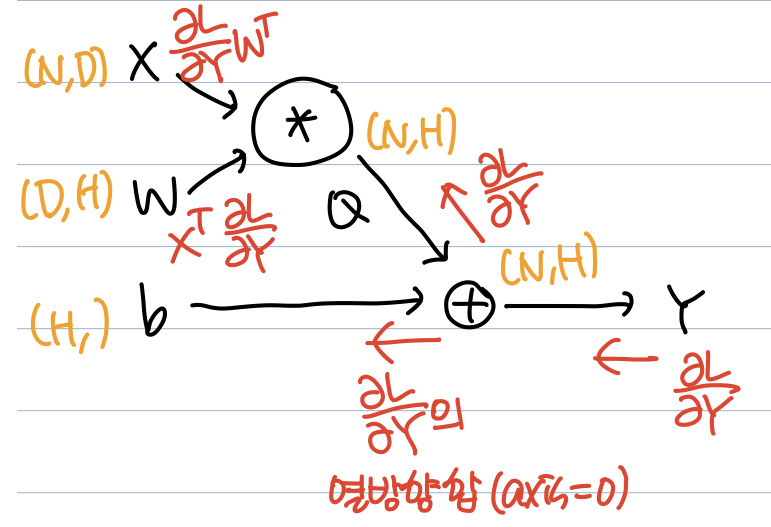 (N,D) X ∂L/∂Y Wᵀ
* (N,H)
(D,H) W
Xᵀ ∂L/∂Y
Q
∂L/∂Y
(N,H)
(H,) b
+ Y
∂L/∂Y의
∂L/∂Y
열방향 합 (axis=0)